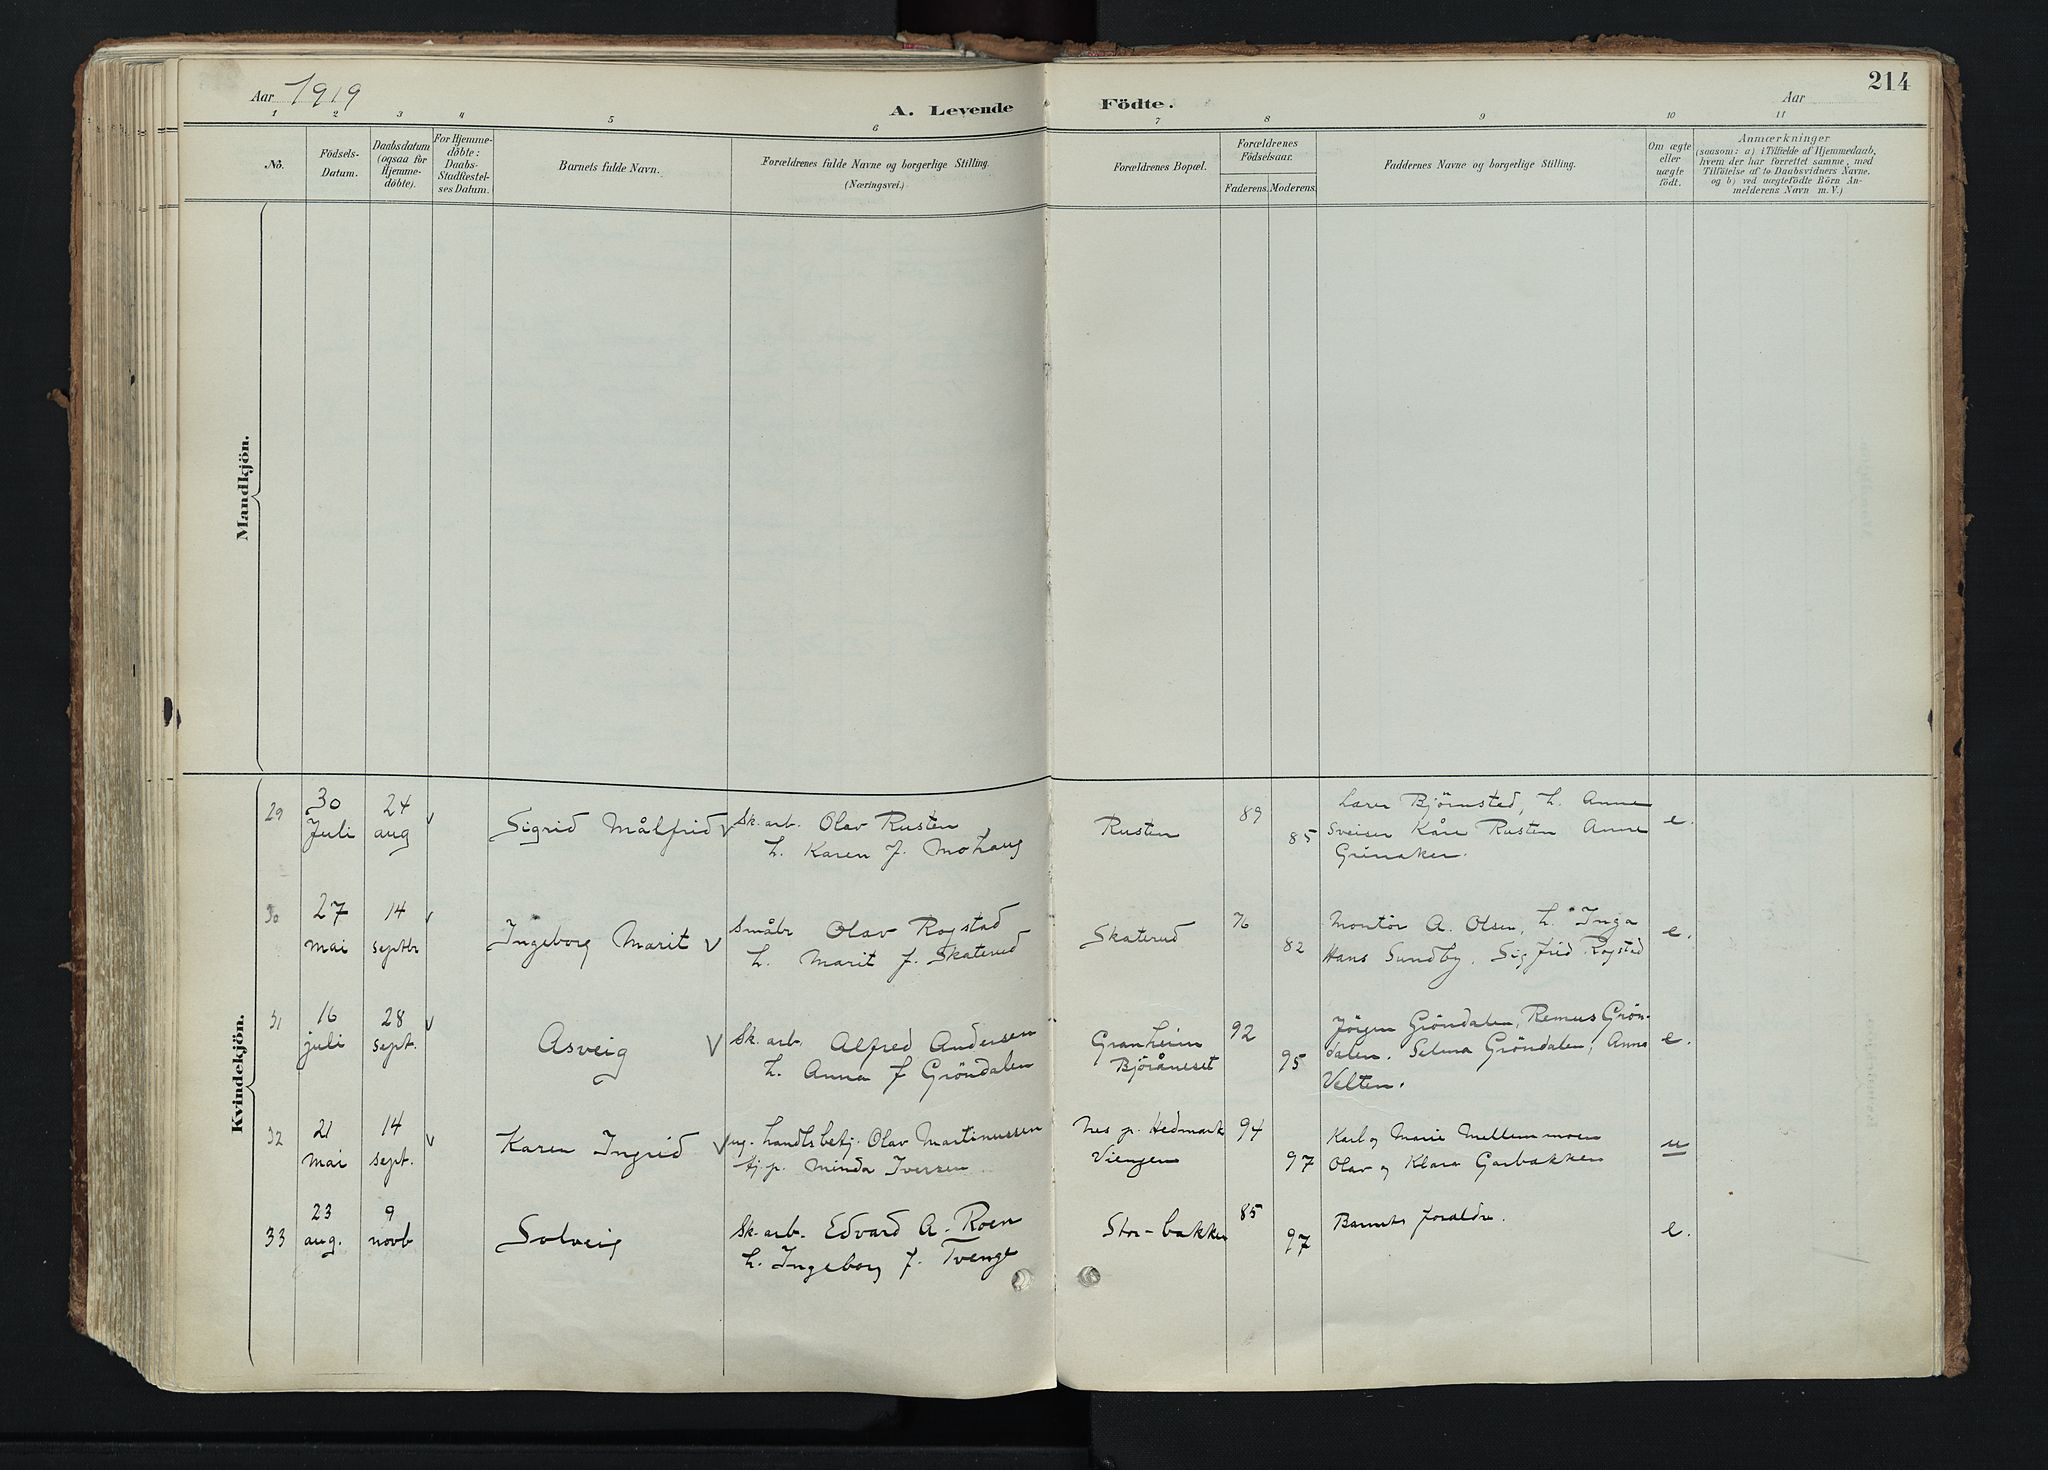 214
Aar 1919
A. Levende Födte.
Aar
1 2 3 4 5 6 7 8 9 10 11
No.
Födsels-
Datum.
Daabsdatum
(ogsaa for
Hjemme-
döbte).
For Hjemme-
döbte:
Daabs-
Stadfæstel-
ses Datum.
Barnets fulde Navn.
Forældrenes fulde Navne og borgerlige Stilling.
(Næringsvei.)
Forældrenes Bopæl.
Forældrenes
Födselsaar.
Faderens. Moderens.
Faddernes Navne og borgerlige Stilling.
Om ægte
eller
uægte
födt.
Anmærkninger
(saasom: a) i Tilfælde af Hjemmedaab,
hvem der har forrettet samme, med
Tilföielse af to Daabsvidners Navne,
og b) ved uægtefödte Börn An-
melderens Navn m. V.)
Mandkjön.
Kvindekjön.
29
30
Juli
24
aug
v
Sigrid Målfrid v
Sk. arb. Olav Rusten
h. Karen f. Mohaug
Rusten
89
85
Lærer Bjørnstad, h. Anne
Sveiser Kåre Rusten Anne
Grinaker.
e.
30
27
mai
14
septbr
v
Ingeborg Marit v
Småbr Olav Rogstad
h. Marit f. Skaterud
Skaterud
76
82
Montör A. Olsen, h. Inga
Hans Sundby. Sigfrid Rogstad
e.
31
16
juli
28
sept.
v
Asveig v
Sk. arb. Alfred Andersen
h. Anna f Gröndalen
Granheim
Björåneset
92
95
Jörgen Gröndalen, Remus Grön-
dalen. Selma Gröndalen, Anna
Velten.
e.
32
21
mai
14
sept.
v
Karen Ingrid v
ug. handlsbetj. Olav Martinussen
tj. p. Minda Iversen
Nes p. Hedmark
Viengen
94
97
Karl og Marie Mellemmoen
Olav og Klara Garbakken
u
33
23
aug.
9
novb
Solveig
Sk. arb. Edvard A. Roen
h. Ingeborg f. Tvenge
Stor-bakken
85
97
Barnets foraldre.
e.